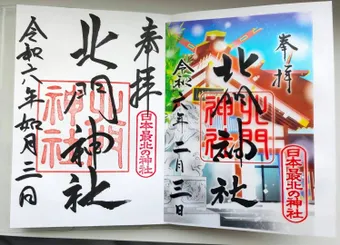 奉拝
北門神社
令和六年二月三日
北門
神社
日本最北の神社
奉拝
北門神社
令和六年如月三日
北門
神社
日本最北の神社